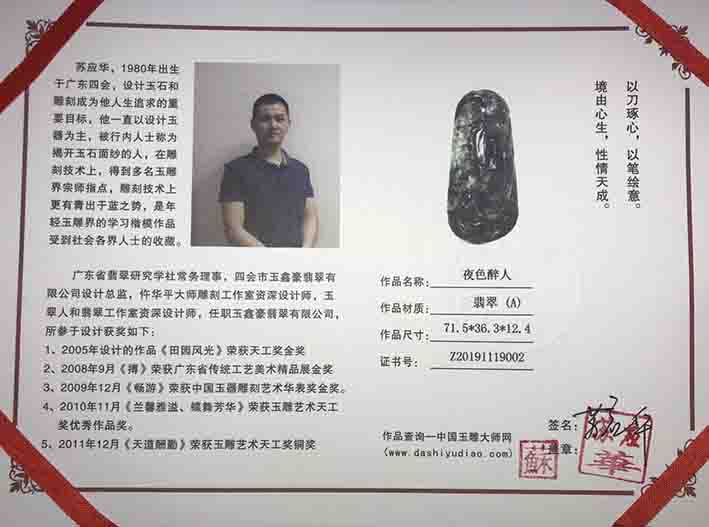 苏应华、1980年出生
于广东四会，设计玉石和
雕刻成为他人生追求的重
要目标，他一直以设计玉
器为主，被行内人士称为
揭开玉石面纱的人，在雕
刻技术上，得到多名玉雕
界宗师指点，雕刻技术上
更有青出于蓝之势，是年
轻玉雕界的学习楷模作品
受到社会各界人士的收藏。
以刀琢心，以笔绘意。
境由心生，性情天成。
广东省翡翠研究学社常务理事，四会市玉鑫豪翡翠有
限公司设计总监，仵华平大师雕刻工作室资深设计师，玉
翠人和翡翠工作室资深设计师，任职玉鑫豪翡翠有限公司，
所参于设计获奖如下：
1、2005年设计的作品《田园风光》荣获天工奖金奖
2、2008年9月《搏》荣获广东省传统工艺美术精品展金奖
3、2009年12月《畅游》荣获中国玉器雕刻艺术华表奖金奖。
4、2010年11月《兰馨雅溢、蝶舞芳华》荣获玉雕艺术天工
奖优秀作品奖。
5、2011年12月《天道酬勤》荣获玉雕艺术天工奖铜奖
作品名称： 夜色醉人
作品材质： 翡翠 (A)
作品尺寸： 71.5*36.3*12.4
证书号： Z20191119002
作品查询一中国玉雕大师网
(www.dashiyudiao.com)
签名：
盖章：
華